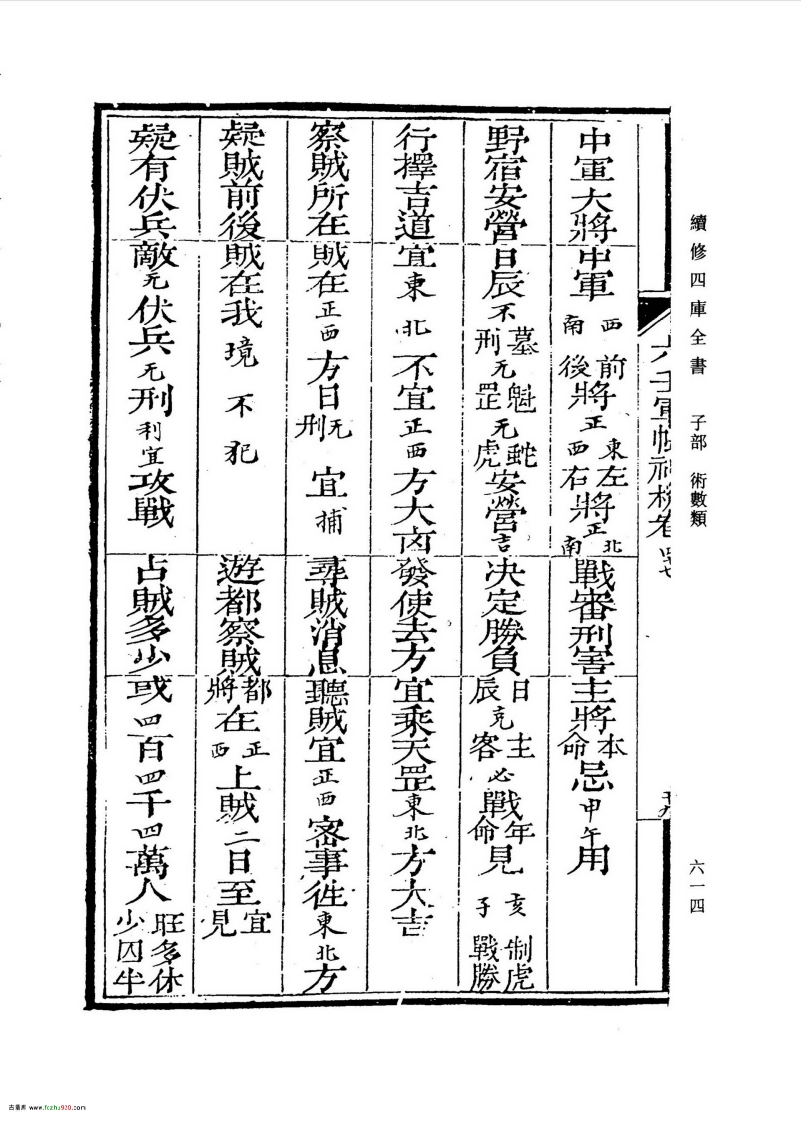 續修四庫全書 子部 術數類
六一四
六壬軍帳神機卷四十七
中軍大將中軍西南前後將正東西左右將正北南戰審刑害主將本命忌甲午用
野宿安營日辰不墓刑无魁罡无蛇虎安營吉决定勝負日辰克主客必戰年命見亥子制虎戰勝
行擇吉道宜東北不宜正西方大凶發使去方宜乘天罡東北方大吉
察賊所在賊在正西方日无刑宜捕尋賊消息聽賊宜正西密事徃東北方
疑賊前後賊在我境不犯遊都察賊都將在正西上賊二日至宜見
疑有伏兵敵无伏兵无刑利宜攻戰占賊多少或四百四千四萬人旺多休少囚半
古籍库 www.fczhu920.com